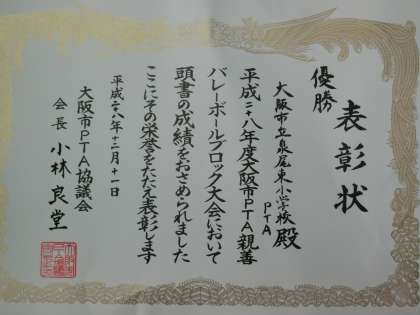 表彰状
優勝
大阪市立泉尾東小学校
PTA殿
平成二十八年度大阪市PTA親善
バレーボールブロック大会において
頭書の成績をおさめられました
ここにその栄誉をたたえ表彰します
平成二十八年十二月十一日
大阪市PTA協議会
会長 小林良堂